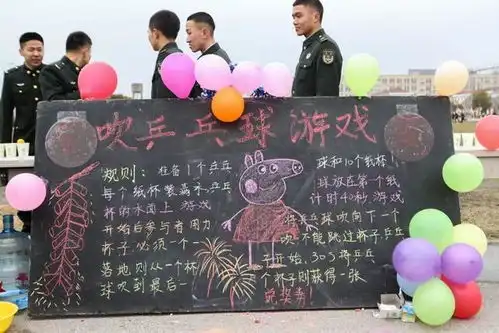 吹乒乓球游戏
规则：准备1个乒乓
球和10个纸杯！
每个纸杯装满水，乒乓
球放在第一个纸
杯的水面上 游戏
计时40秒 游戏
开始后参与者用力
将乒乓球吹向下一个
杯子必须一个
吹 不能跳过杯子，乒乓
落地则从一个杯
子开始，30s将乒乓
球吹到最后一
个杯子则获得一张
吃奖券！